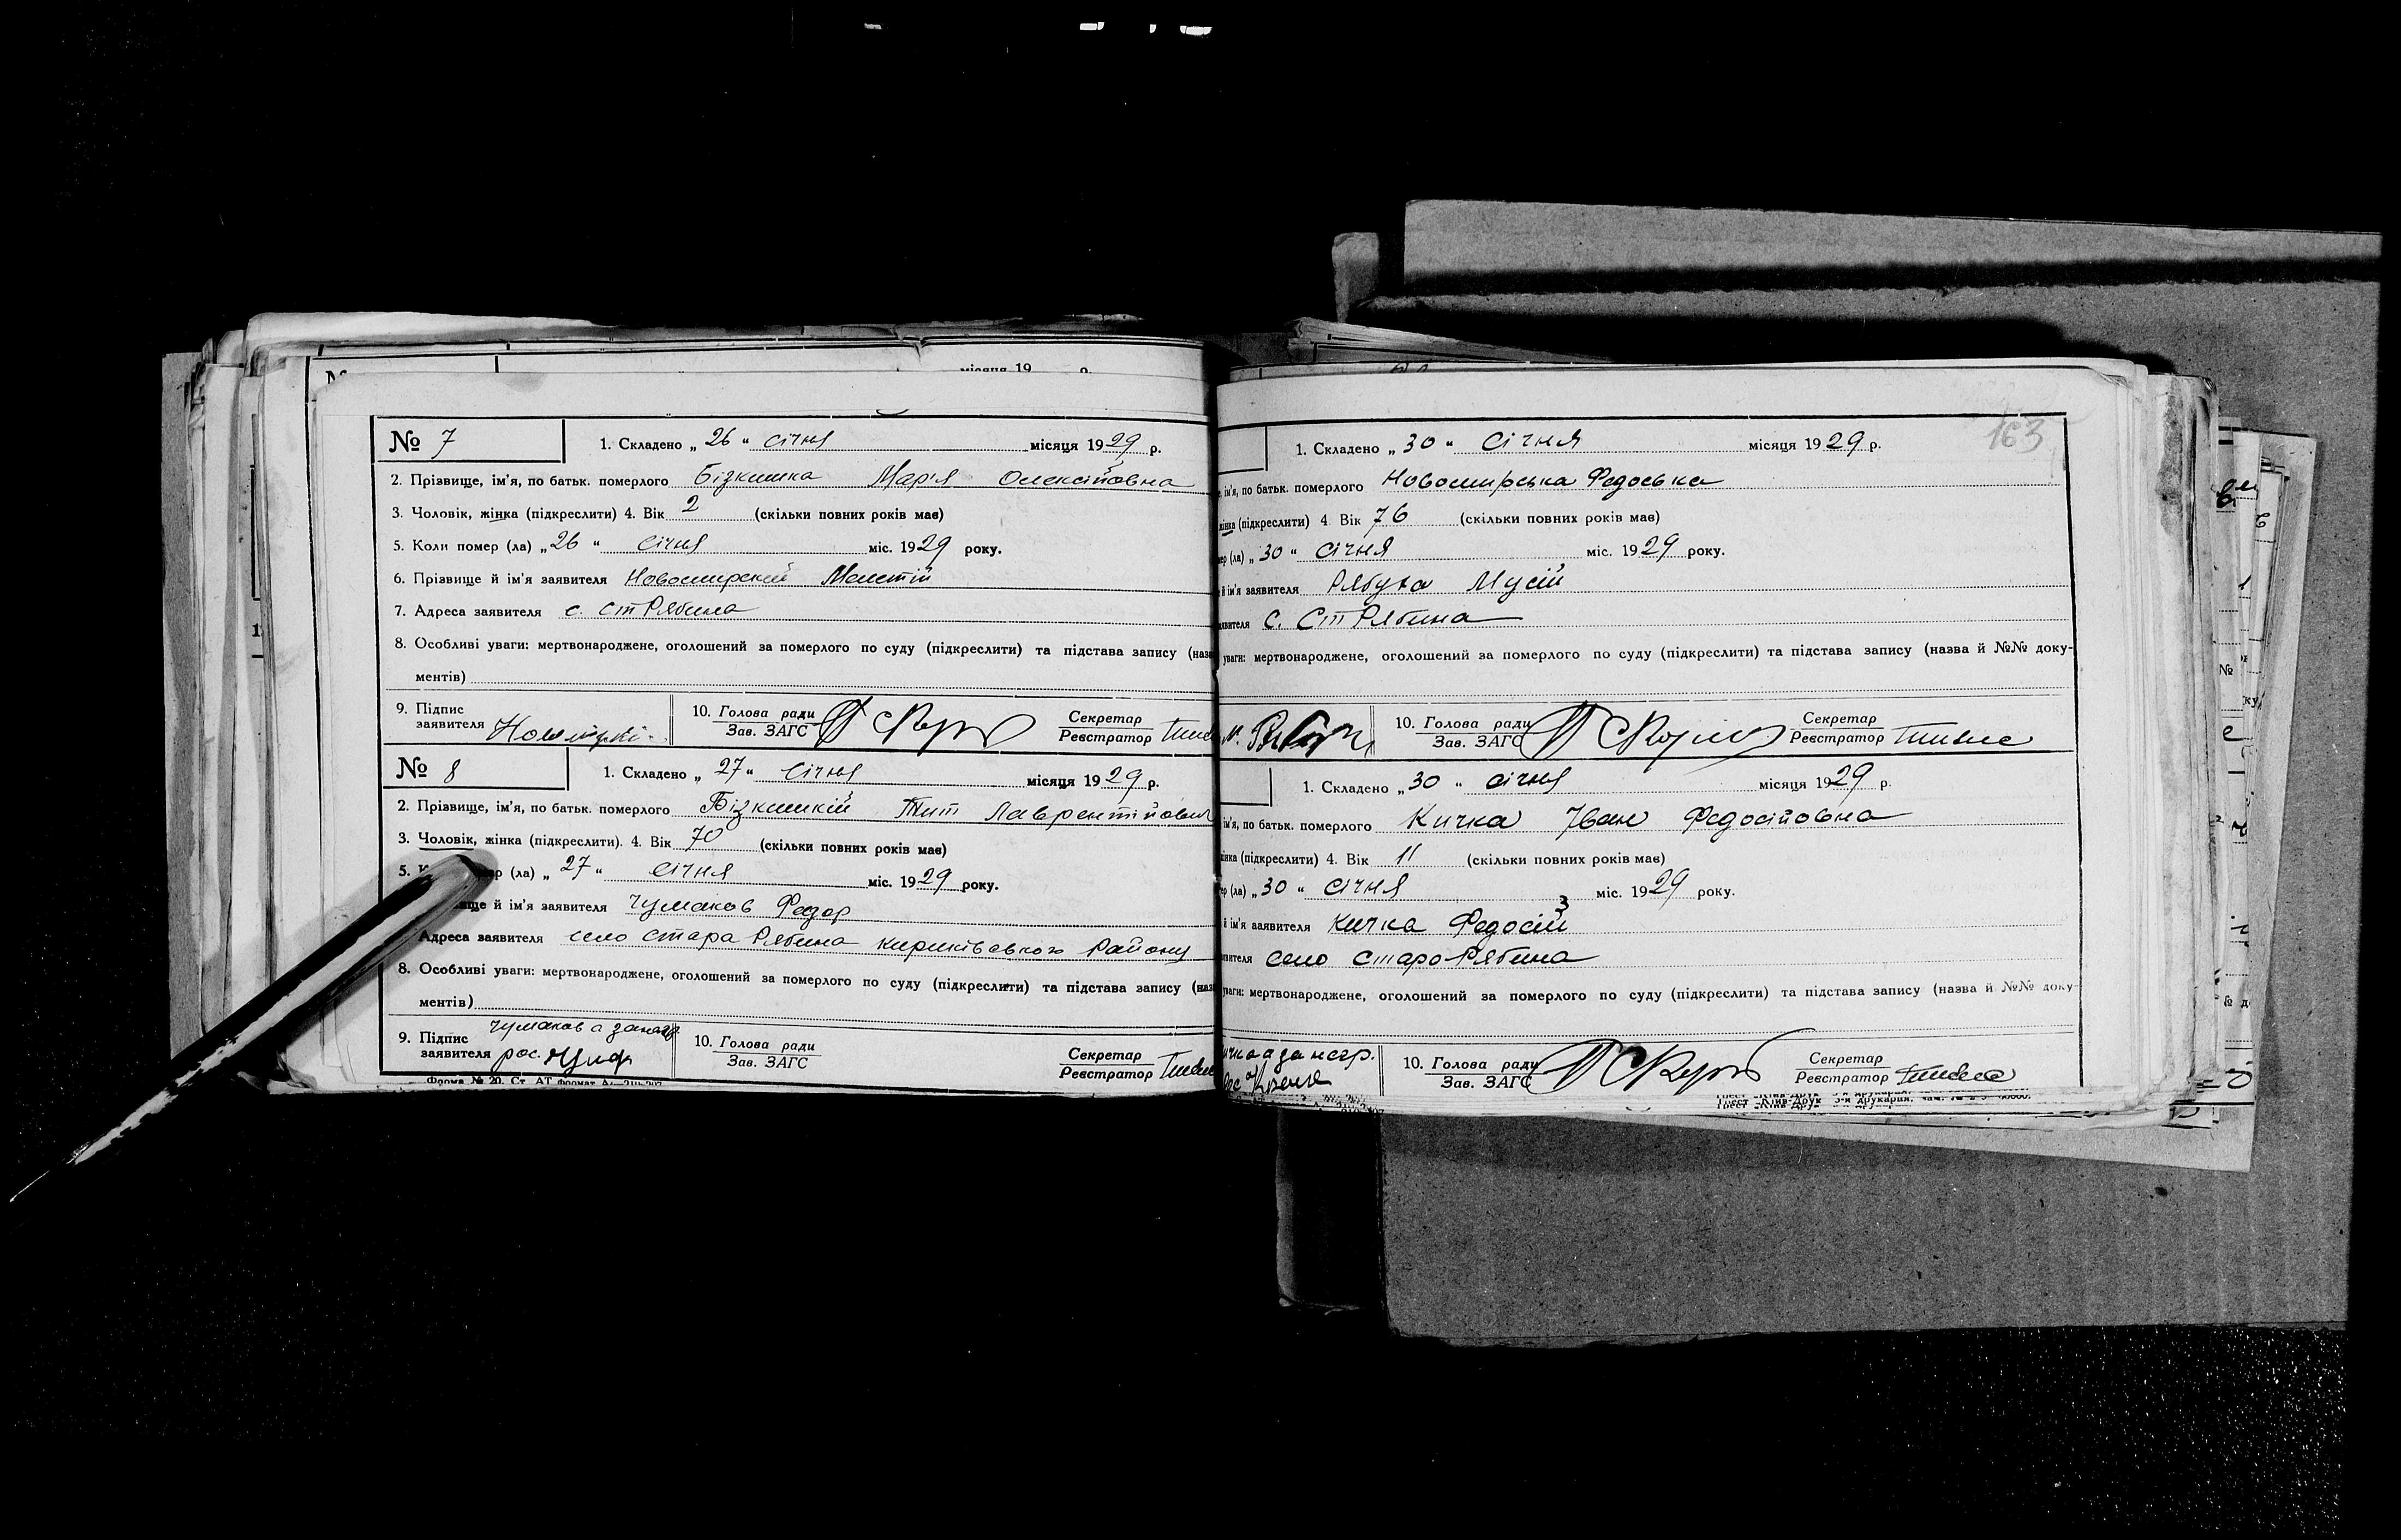 місяця 19 р.
№ 7
1. Складено „ 26 “ січня місяця 1929 р.
2. Прізвище, ім'я, по батьк. померлого Бізкишка Мар'я Олексійовна
3. Чоловік, жінка (підкреслити) 4. Вік 2 (скільки повних років має)
5. Коли помер (ла) „ 26 “ січня міс. 1929 року.
6. Прізвище й ім'я заявителя Новомирский
7. Адреса заявителя с. Ст Рябина
8. Особливі уваги: мертвонароджене, оголошений за померлого по суду (підкреслити) та підстава запису (наз
ментів)
9. Підпис
заявителя
10. Голова ради
Зав. ЗАГС
Секретар
Реєстратор
№ 8
1. Складено „ 27 “ січня місяця 1929 р.
2. Прізвище, ім'я, по батьк. померлого Бізкишкій Тит Лаврентійович
3. Чоловік, жінка (підкреслити). 4. Вік 70 (скільки повних років має)
5. (ла) „ 27 “ січня міс. 1929 року.
й ім'я заявителя Чумаков Федор
Адреса заявителя село Стара Рябина Кириківського Району
8. Особливі уваги: мертвонароджене, оголошений за померлого по суду (підкреслити) та підстава запису (наз
ментів)
9. Підпис
заявителя
Чумаков а за
рос.
10. Голова ради
Зав. ЗАГС
Секретар
Реєстратор
Форма № 20. Ст. АТ формат
163
1. Складено „ 30 “ січня місяця 1929 р.
ім'я, по батьк. померлого Новомирська Федоська
жінка (підкреслити) 4. Вік 76 (скільки повних років має)
(ла) „ 30 “ січня міс. 1929 року.
й ім'я заявителя Рябуха Мусій
с. Ст Рябина
уваги: мертвонароджене, оголошений за померлого по суду (підкреслити) та підстава запису (назва й №№ доку-
10. Голова ради
Зав. ЗАГС
Секретар
Реєстратор
1. Складено „ 30 “ січня місяця 1929 р.
ім'я, по батьк. померлого Кичка Іван Федосійовна
жінка (підкреслити) 4. Вік 11 (скільки повних років має)
(ла) „ 30 “ січня міс. 1929 року.
й ім'я заявителя Кичка Федосій
село Старо Рябина
уваги: мертвонароджене, оголошений за померлого по суду (підкреслити) та підстава запису (назва й №№ доку-
10. Голова ради
Зав. ЗАГС
Секретар
Реєстратор
3-я друкарня